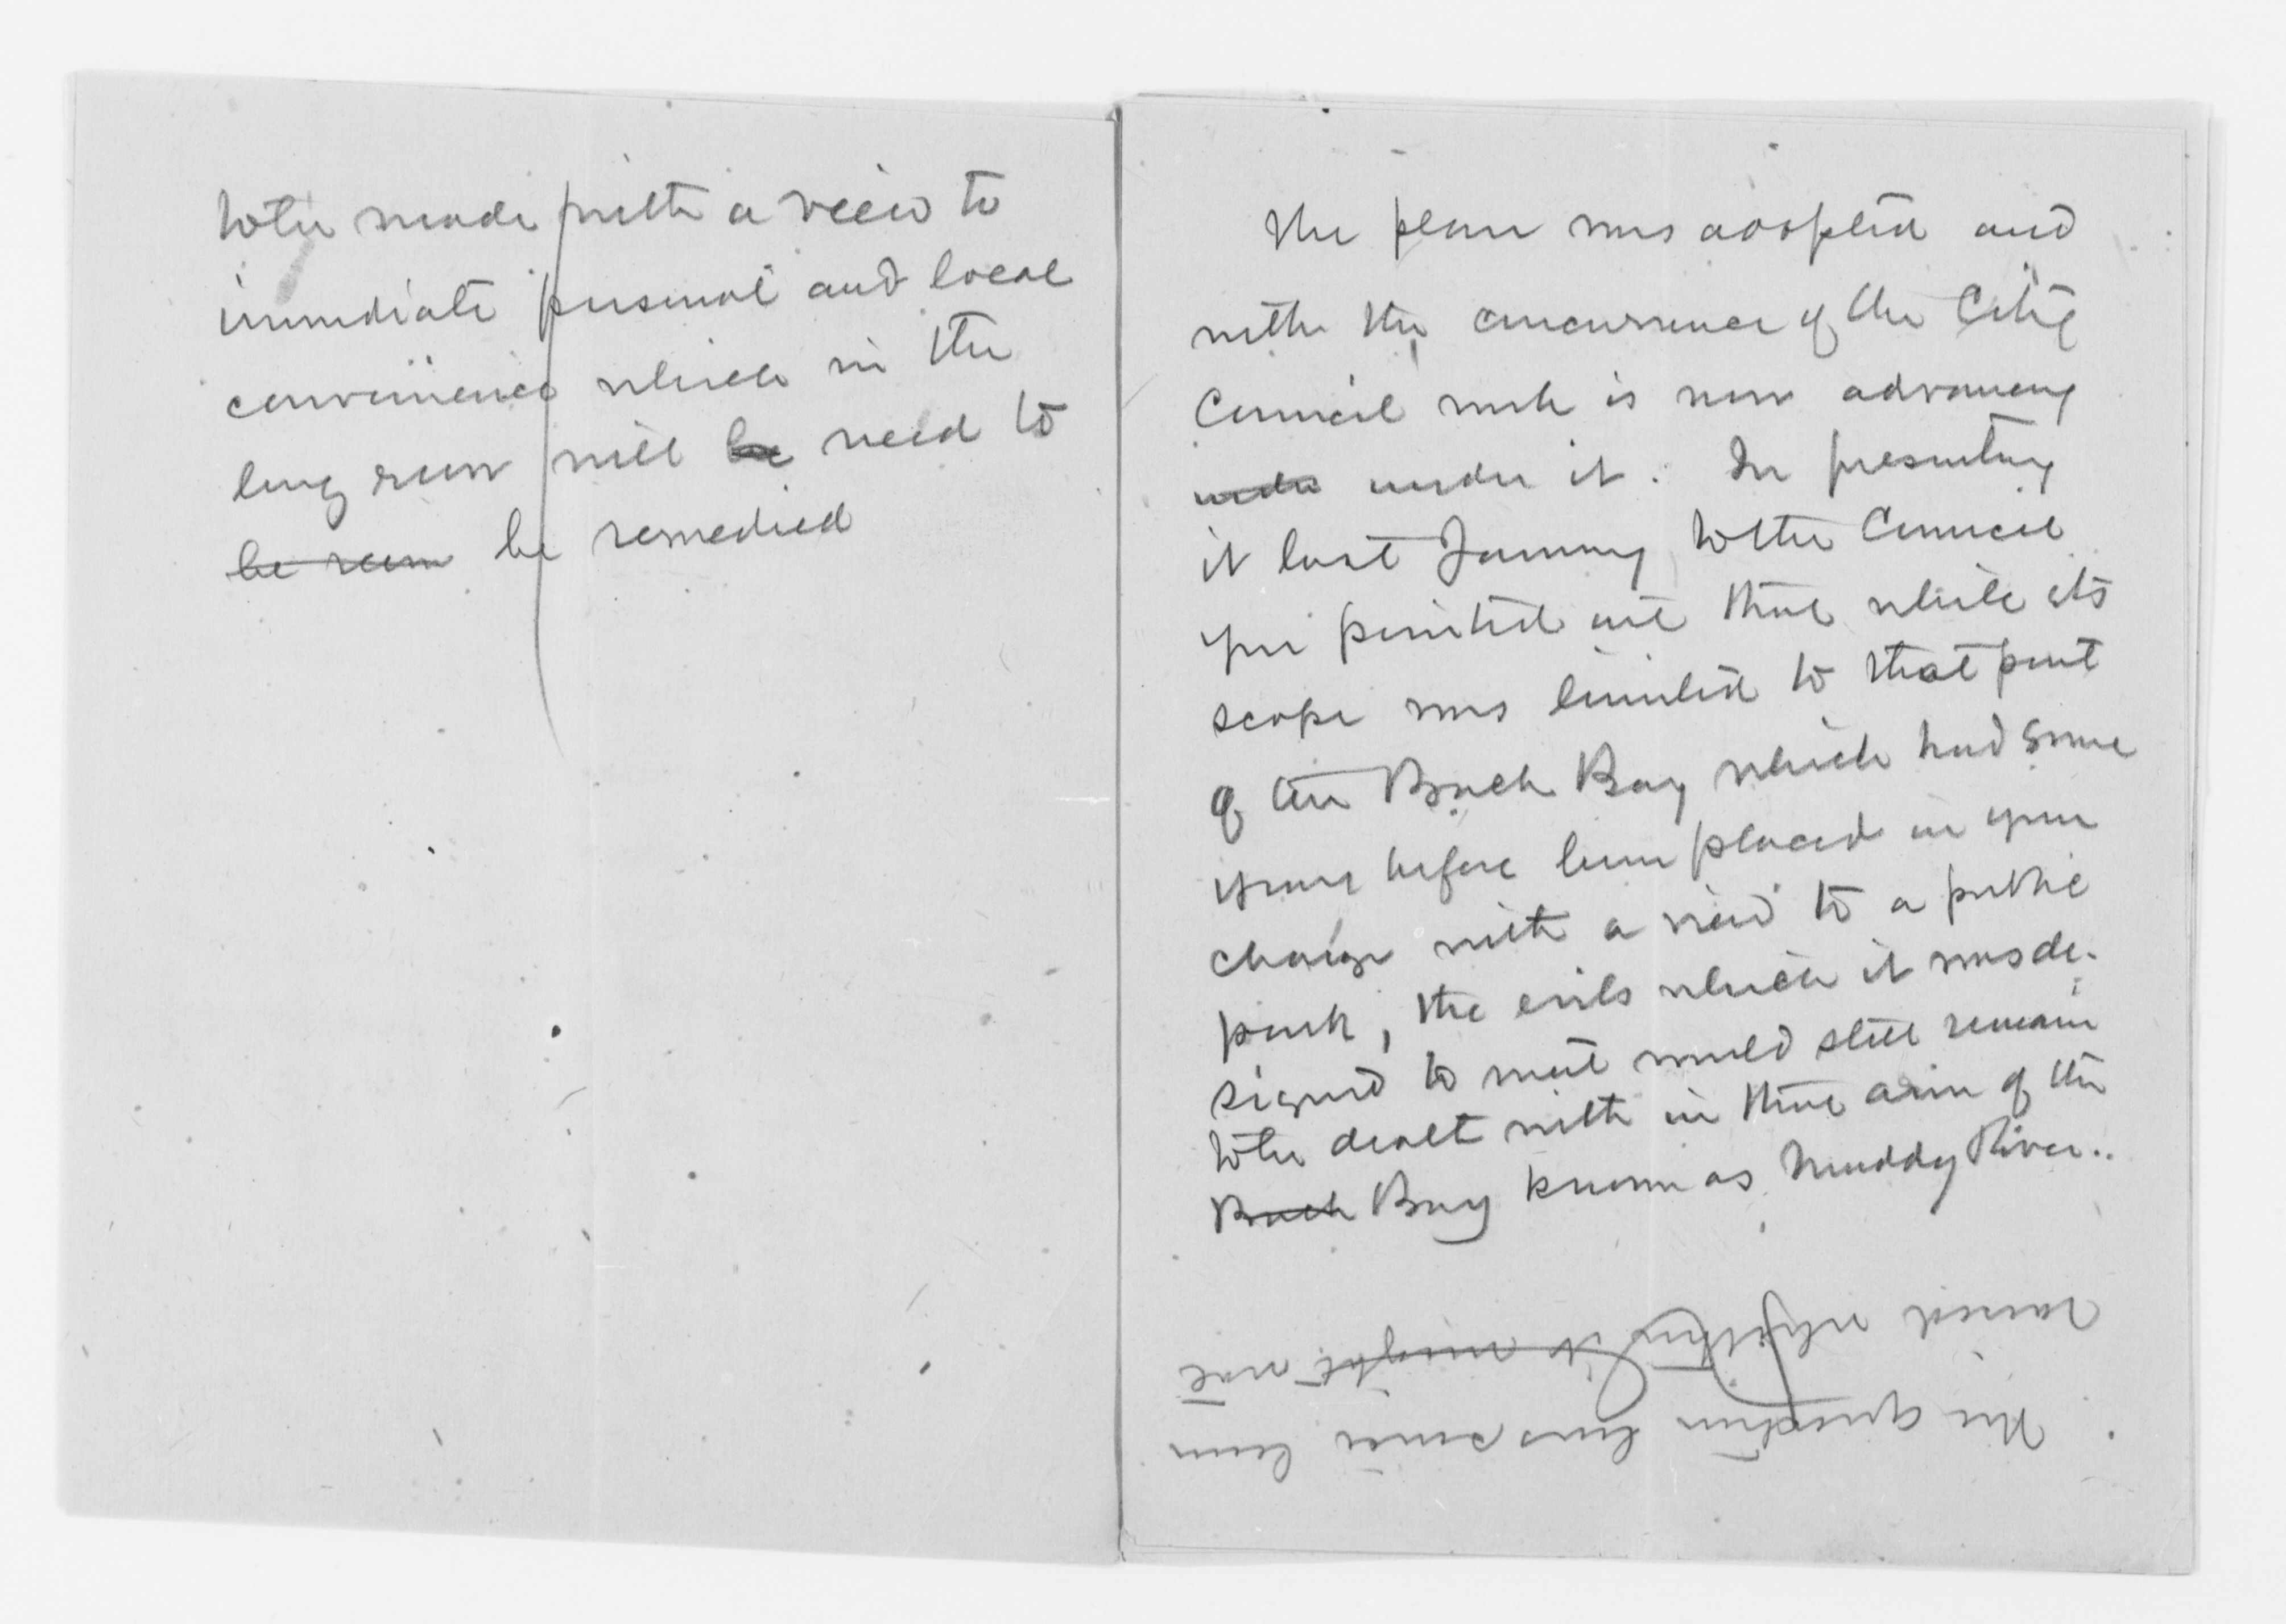 to be made with a view to
immediate personal and local
convenience which in the
long run will be need to
be run be remedied
The plan was adopted and
with the concurrence of the City
Council work is now advancing
under under it. In presenting
it last January to the Council
you pointed out that while its
scope was limited to that part
of the Back Bay which had some
years before been placed in your
charge with a view to a public
park, the evils which it was de-
signed to meet would still remain
to be dealt with in that arm of the
Back Bay known as Muddy River..
The question has since been
raised whether it might not